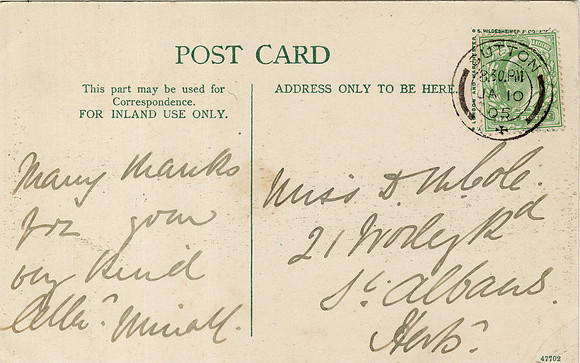 S. HILDESHEIMER & CO.
LONDON AND MANCHESTER
POST CARD
This part may be used for
Correspondence.
FOR INLAND USE ONLY.
ADDRESS ONLY TO BE HERE.
SUTTON
8.30.PM
JA 10
05
Many thanks
for your
very kind
Miss D
21 Worley Rd
St. Albans.
Herts.
47702